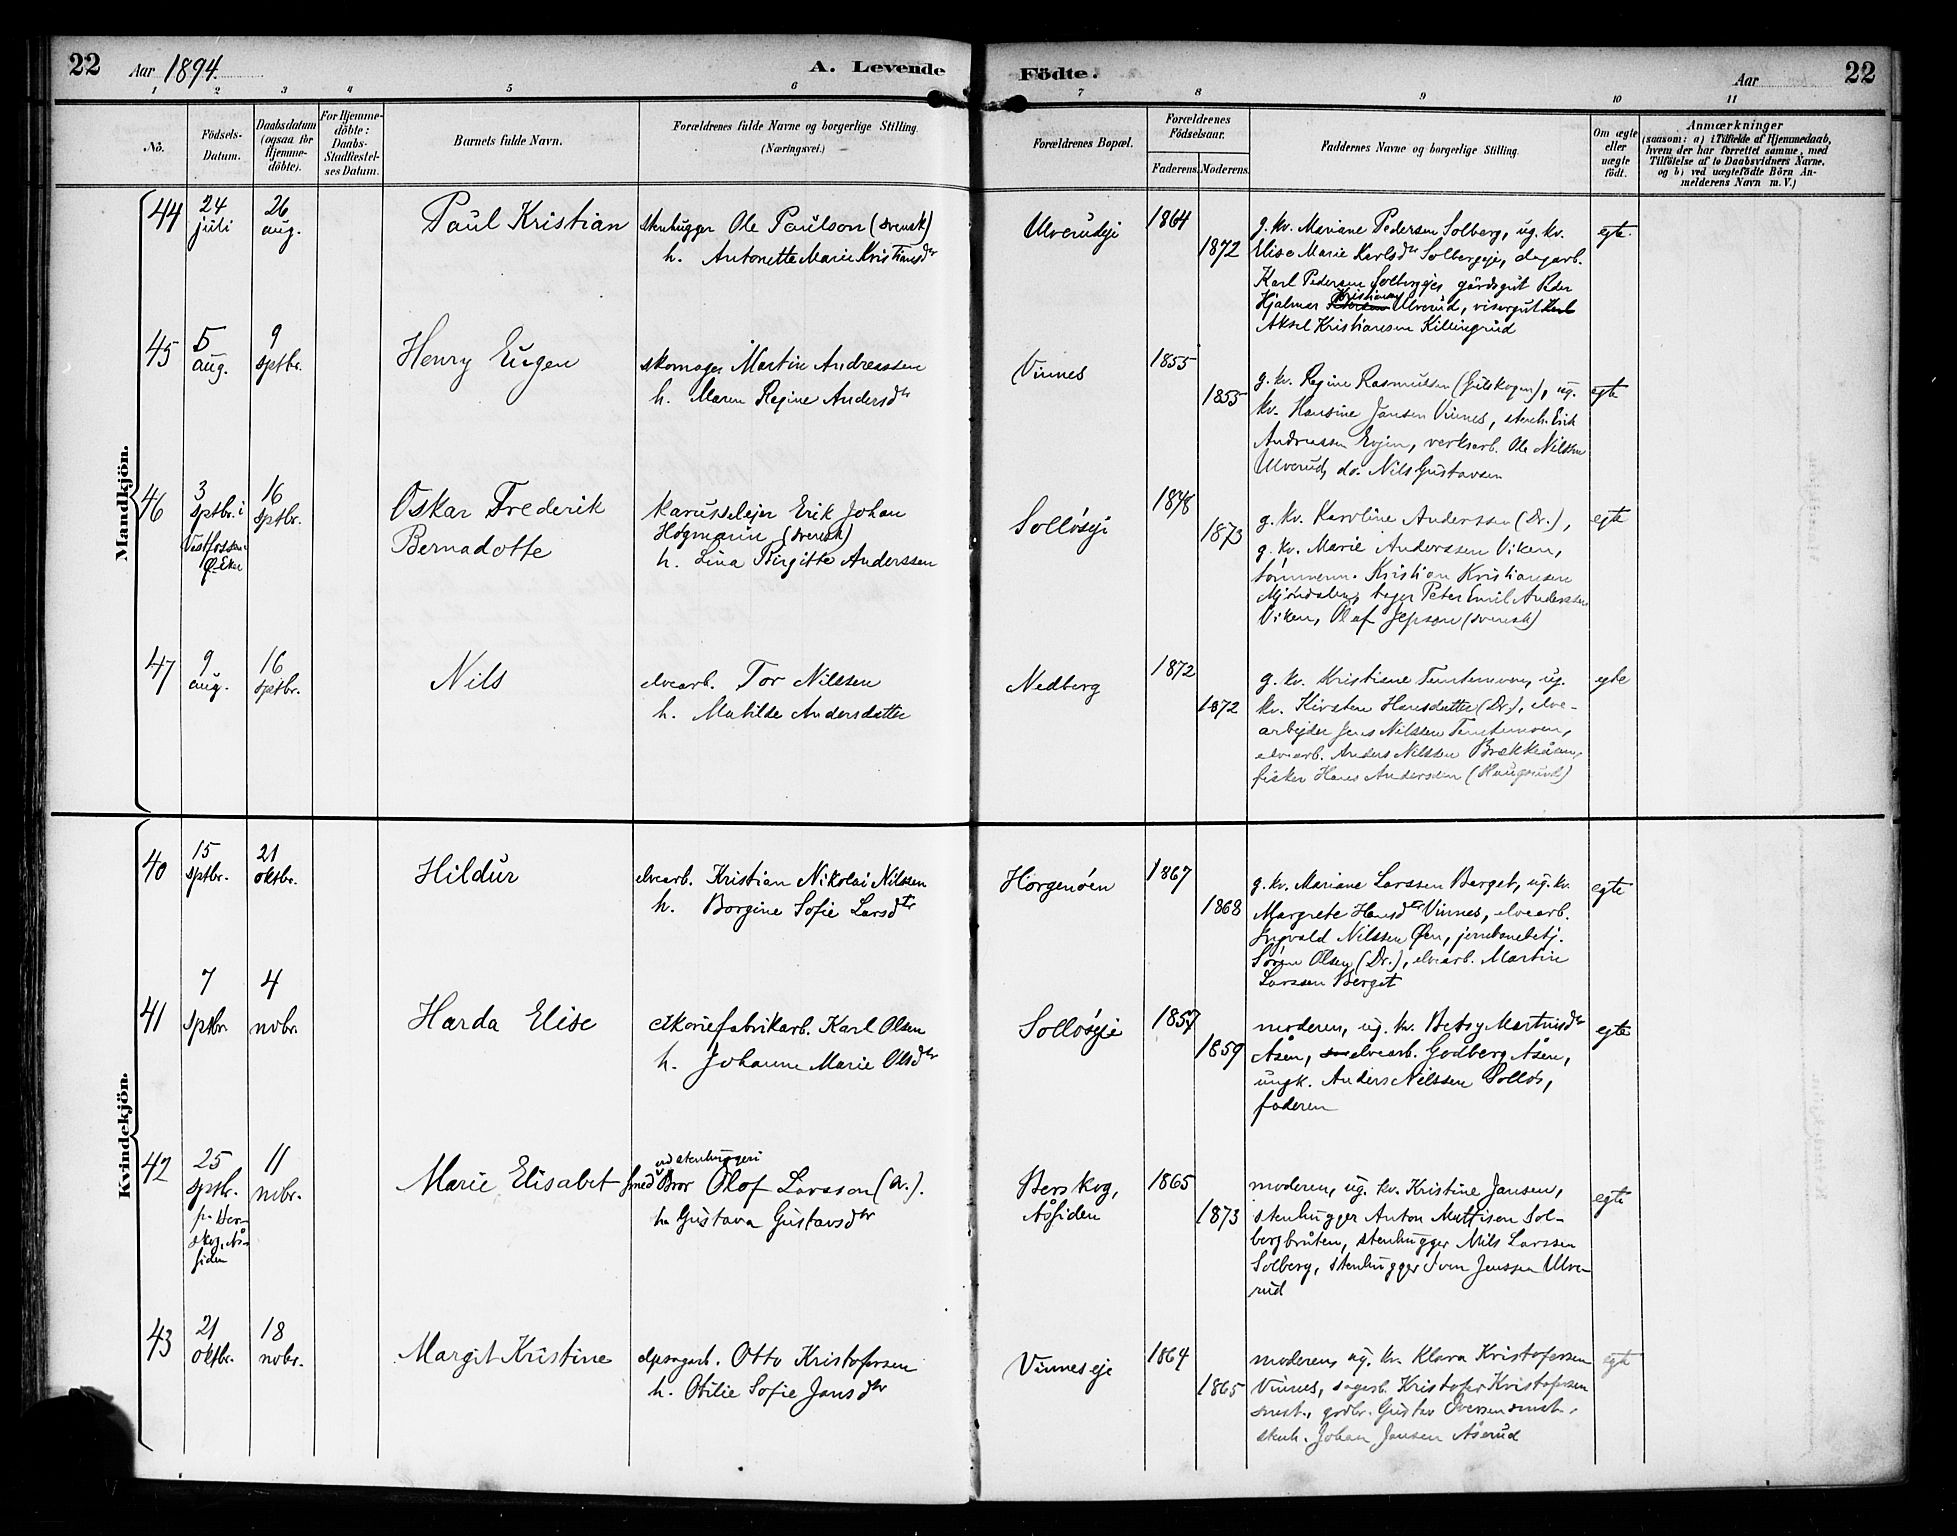 22 Aar 1894. A. Levende Födte. Aar 22
1 2 3 4 5 6 7 8 9 10 11
Nö.
Födsels-Datum.
Daabsdatum (ogsaa for Hjemmedöbte).
For Hjemmedöbte: Daabs-Stadfæstelses Datum.
Barnets fulde Navn.
Forældrenes fulde Navne og borgerlige Stilling.
(Næringsvei.)
Forældrenes Bopæl.
Forældrenes Födselsaar.
Faderens. Moderens.
Faddernes Navne og borgerlige Stilling.
Om ægte eller uægte födt.
Anmærkninger
(saasom: a) i Tilfælde af Hjemmedaab,
hvem der har forrettet samme, med
Tilföielse af to Daabsvidners Navne.
og b) ved uægtefödte Börn Anmelderens Navn m. V.)
Mandkjön.
44
24 juli
26 aug.
Paul Kristian
stenhugger Ole Paulson (svensk)
h. Antonette Marie Kristiansdtr
Ulverudeje
1864
1872
g. kv. Mariane Pedersen Solberg, ug. kv.
Elise Marie Karlsdtr Solbergeje, dagarb.
Karl Pedersen Solbergeje, gårdsgut Peder
Hjalmar Kristiansen Ulverud, visergut
Aksel Kristiansen Killingrud
egte.
45
5 aug.
9 sptbr.
Henry Eugen
skomager Martin Andreassen
h. Maren Regine Andersdtr
Vinnes
1855
1855
g. kv. Regine Rasmussen (Gulskogen), ug.
kv. Hansine Jansen Vinnes, stenh. Erik
Andreassen Evjen, verksarb. Ole Nilssen
Ulverud, do. Nils Gustavsen
egte
46
3 sptbr. i Vestfossen Ø. Eker
16 sptbr.
Oskar Frederik
Bernadotte
karusselejer Erik Johan
Högmann (svensk)
h. Lina Birgitte Anderssen
Sollöseje
1873
g. kv. Karoline Anderssen (Dr.),
g. kv. Marie Anderssen Viken,
tömmerm. Kristian Kristiansen
Mjöndalen, bager Peter Emil Anderssen
Viken, Olaf Jepson (svensk)
egte
47
9 aug.
16 sptbr.
Nils
elvearb. Tor Nilssen
h. Matilde Andersdatter
Nedberg
1872
1872
g. kv. Kristiane Temtemoen, ug.
kv. Kirsten Hansdatter (Dr.), elve-
arbejder Jens Nilssen Temtemoen,
elvearb. Anders Nilssen Brækkeåsen,
fisker Hans Anderssen (Haugsund)
egte
Kvindekjön.
40
15 sptbr.
21 oktbr.
Hildur
elvearb. Kristian Nikolai Nilssen
h. Borgine Sofie Larsdtr
Horgenöen
1867
1868
g. kv. Mariane Larssen Berget, ug. kv.
Margrete Hansdtr Vinnes, elvearb.
Ingvald Nilssen Øen, jernbanebetj.
Sören Olsen (Dr.), elvearb. Martin
Larssen Berget
egte
41
7 sptbr.
4 nvbr.
Harda Elise
cikoriefabrikarb. Karl Olsen
h. Johanne Marie Olsdtr
Sollöseje
1857
1859
moderen, ug. kv. Betsy Martinsdtr
Åsen, elvearb. Godberg Åsen,
ungk. Anders Nilssen Sollös,
faderen
egte
42
25 sptbr. på Berskog, Åssiden
11 nvbr.
Marie Elisabet
ved stenhuggeri
smed Bror Olof Larsson (sv.).
h. Gustava Gustavsdtr
Berskog,
Åssiden
1865
1873
moderen, ug. kv. Kristine Jansen,
stenhugger Anton Mattisen Sol-
bergbråten, stenhugger Nils Larssen
Solberg, stenhugger Sven Jenssen Ulve-
rud
egte
43
21 oktbr.
18 nvbr.
Margit Kristine
dpsagarb. Otto Kristofersen
h. Otilie Sofie Jansdtr
Vinneseje
1864
1865
moderen, ug. kv. Klara Kristofersen
Vinnes, sagarb. Kristofer Kristofersen
smst., gdbr. Gustav Iversen smst.,
stenh. Johan Jansen Åserud
egte